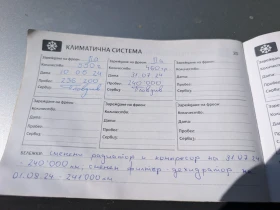 КЛИМАТИЧНА СИСТЕМА
Зареждане на фреон: Да
Количество: 550г
Дата: 10.05.24
Пробег: 236 200
Сервиз: Пловдив
Зареждане на фреон: Да
Количество: 460гр
Дата: 31.07.24
Пробег: 240 000
Сервиз: Пловдив
Зареждане на фреон:
Количество:
Дата:
Пробег:
Сервиз:
Зареждане на фреон:
Количество:
Дата:
Пробег:
Сервиз:
Зареждане на фреон:
Количество:
Дата:
Пробег:
Сервиз:
Зареждане на фреон:
Количество:
Дата:
Пробег:
Сервиз:
Бележки: сменени радиатор и компресор на 31.07.24
- 240'000км. сменен филтър дехидратор на
01.08.24 - 241'000км